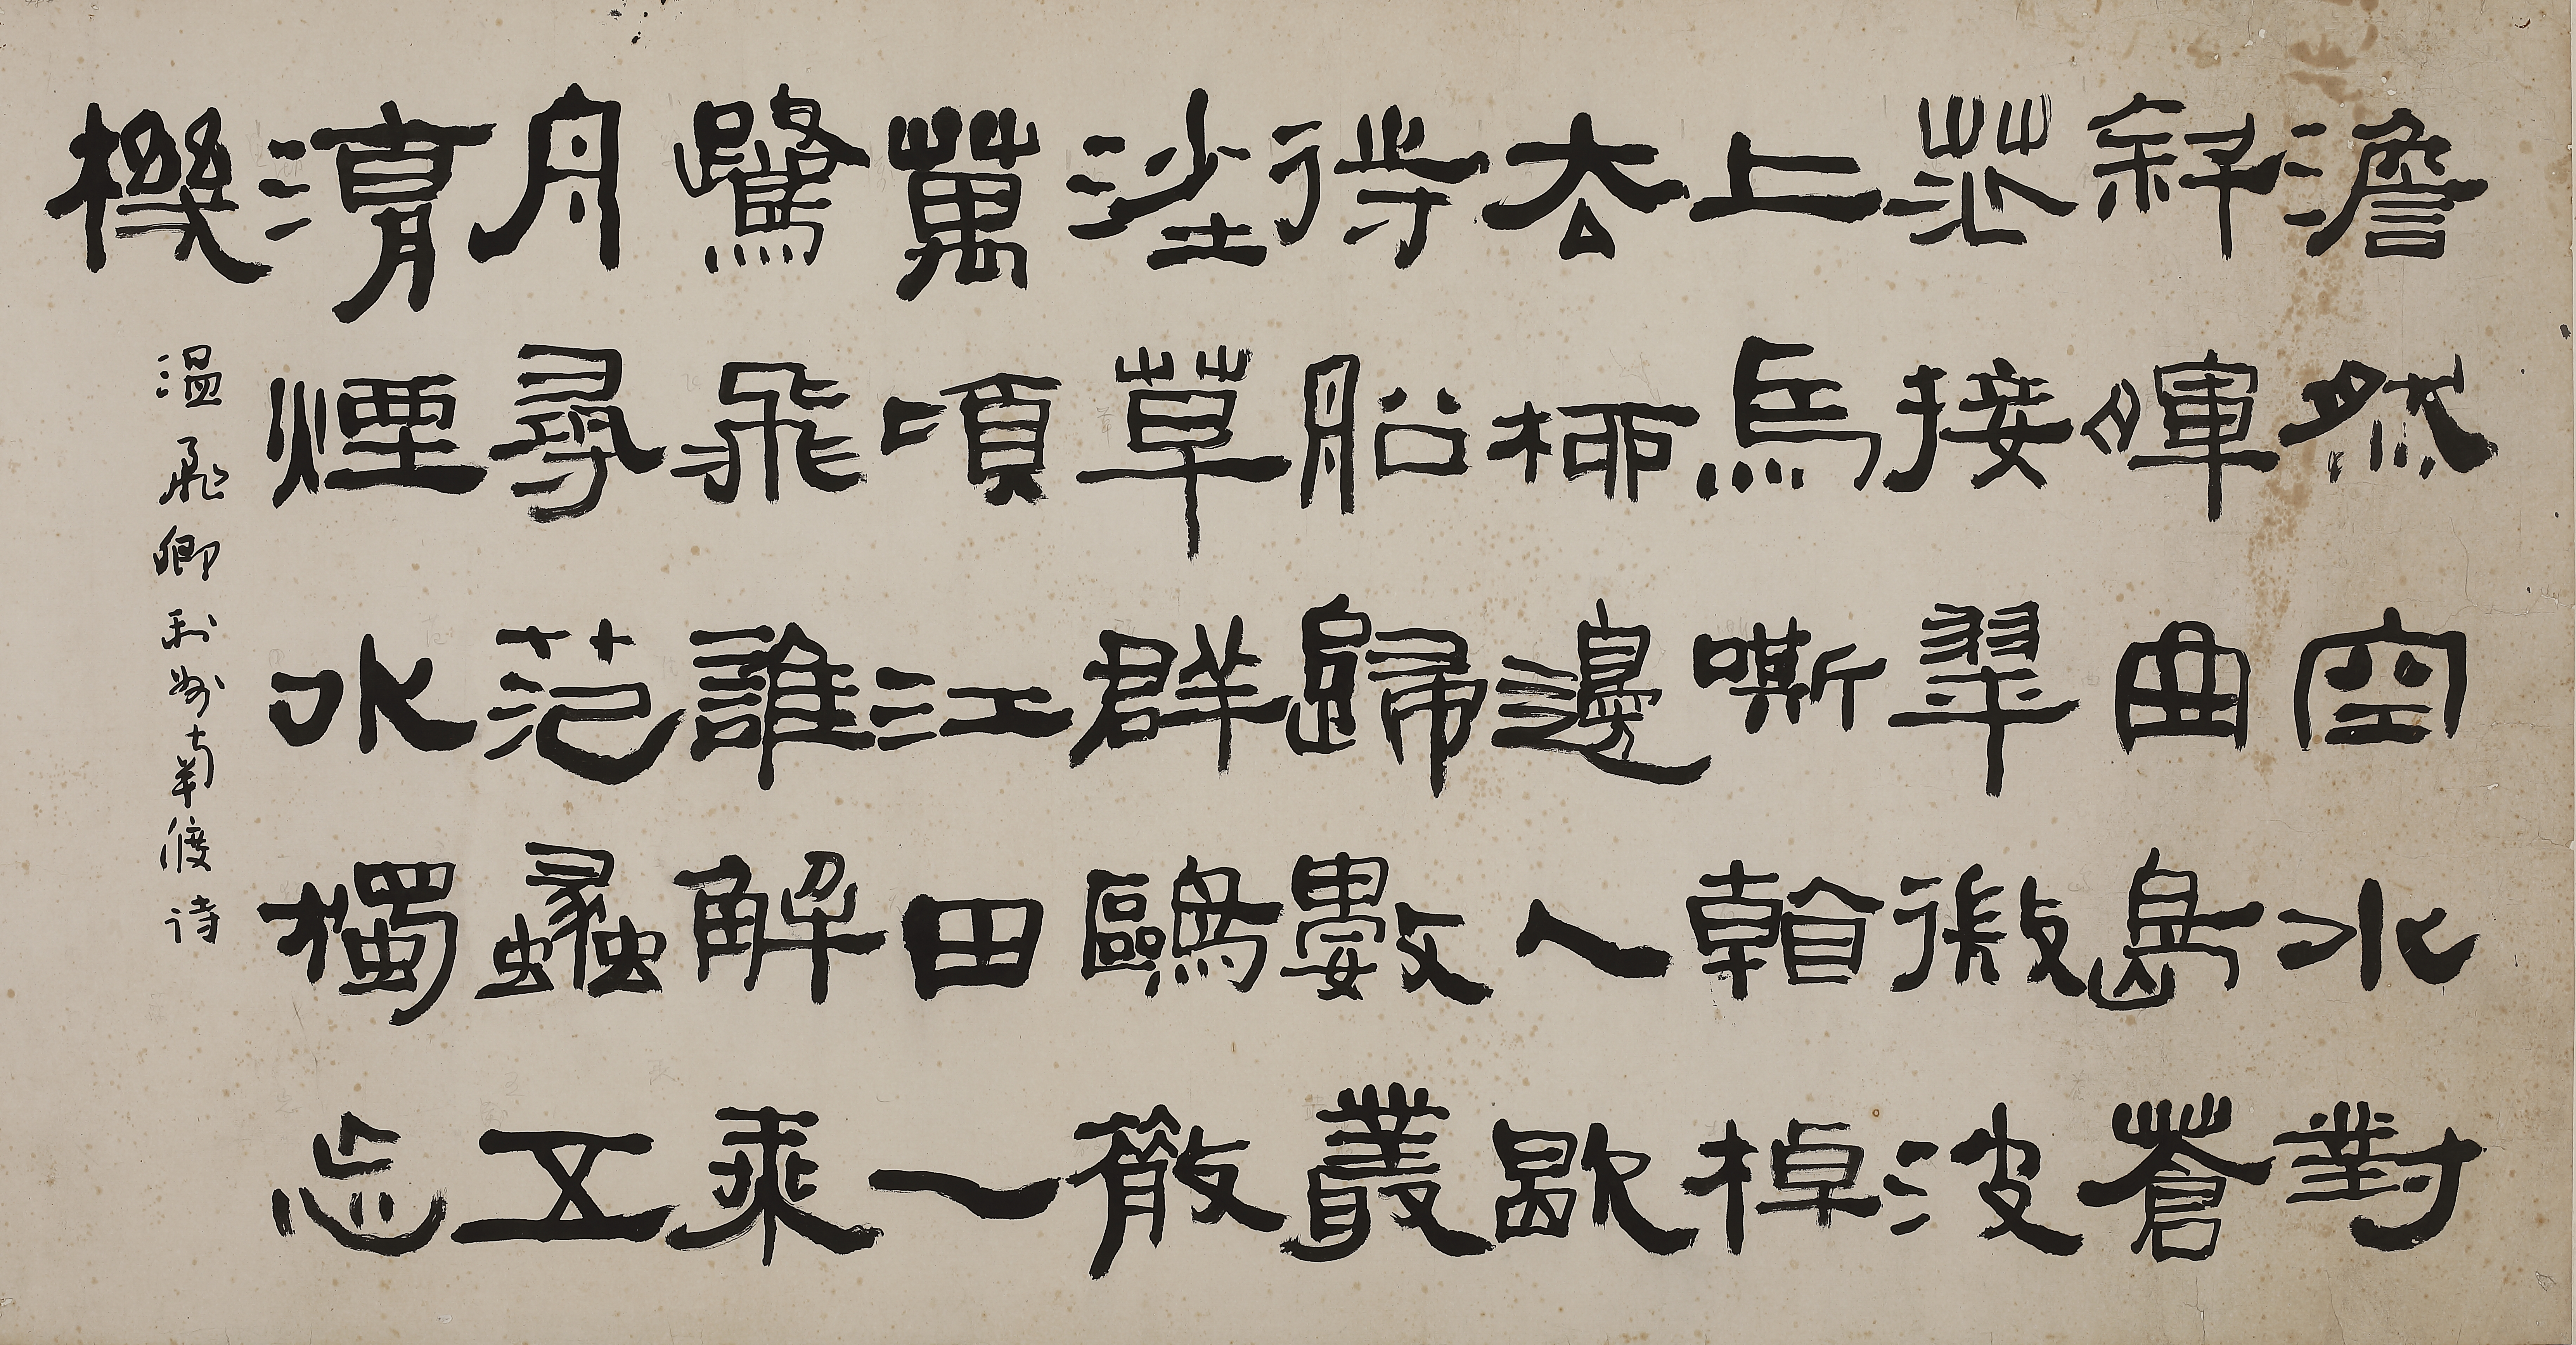 澹然空水對
斜暉曲島蒼
茫接翠微波
上馬嘶看棹
去柳邊人歇
待船歸數叢
沙草群鷗散
萬頃江田一
鷺飛誰解乘
舟尋范蠡五
湖煙水獨忘
機
溫飛卿利州南渡詩